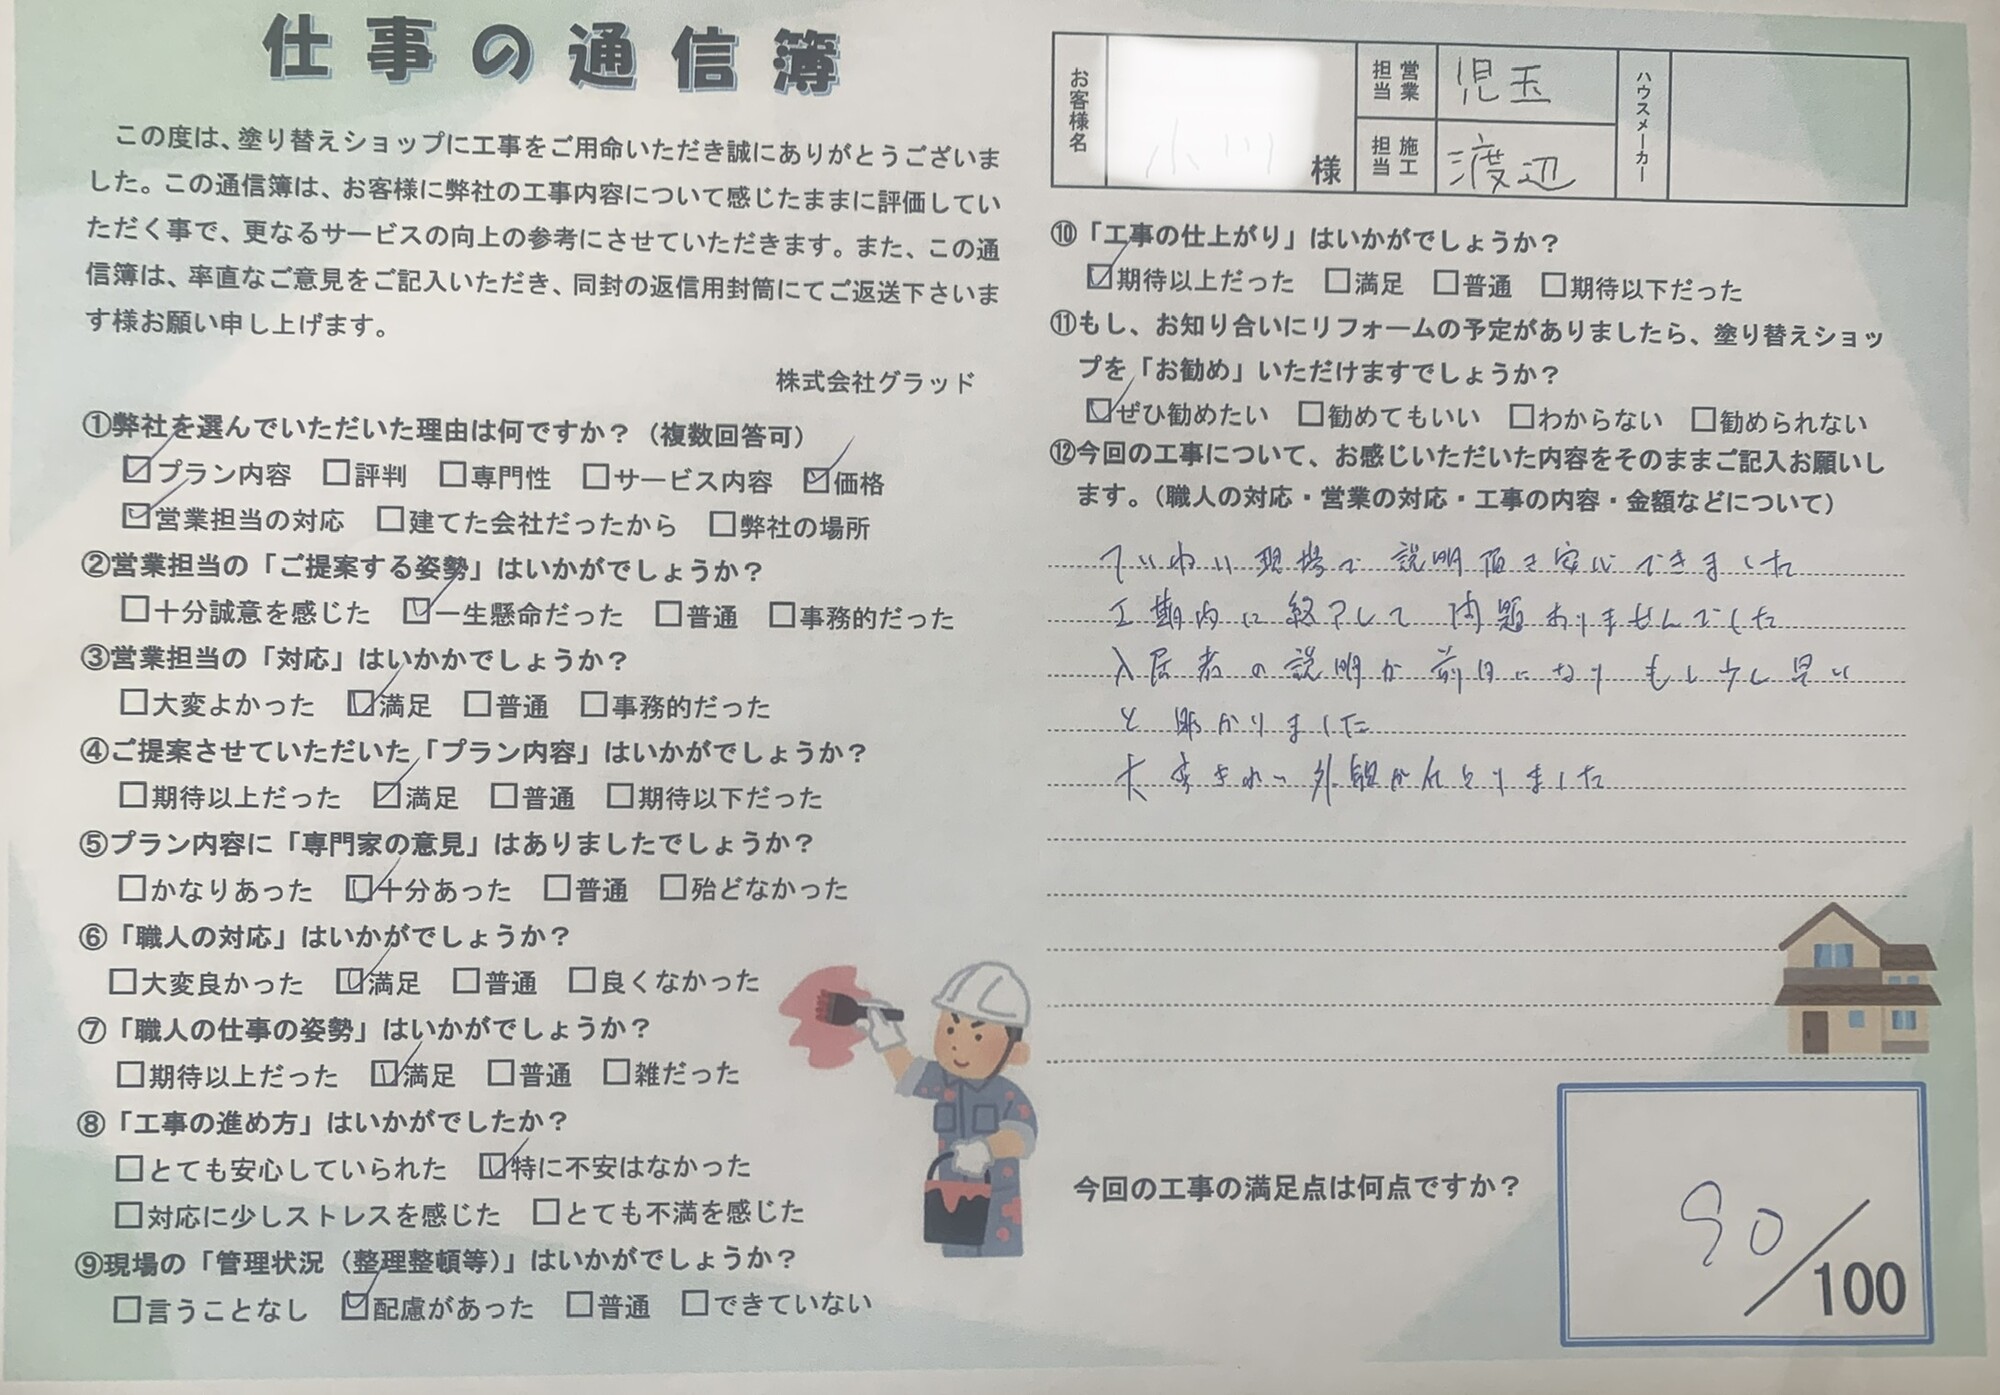 仕事の通信簿
この度は、塗り替えショップに工事をご用命いただき誠にありがとうございま
した。この通信簿は、お客様に弊社の工事内容について感じたままに評価してい
ただく事で、更なるサービスの向上の参考にさせていただきます。また、この通
信簿は、率直なご意見をご記入いただき、同封の返信用封筒にてご返送下さいま
す様お願い申し上げます。
株式会社グラッド
①弊社を選んでいただいた理由は何ですか？（複数回答可）
☑プラン内容 □評判 □専門性 □サービス内容 ☑価格
☑営業担当の対応 □建てた会社だったから □弊社の場所
②営業担当の「ご提案する姿勢」はいかがでしょうか？
□十分誠意を感じた ☑一生懸命だった □普通 □事務的だった
③営業担当の「対応」はいかかでしょうか？
□大変よかった ☑満足 □普通 □事務的だった
④ご提案させていただいた「プラン内容」はいかがでしょうか？
□期待以上だった ☑満足 □普通 □期待以下だった
⑤プラン内容に「専門家の意見」はありましたでしょうか？
□かなりあった ☑十分あった □普通 □殆どなかった
⑥「職人の対応」はいかがでしょうか？
□大変良かった ☑満足 □普通 □良くなかった
⑦「職人の仕事の姿勢」はいかがでしょうか？
□期待以上だった ☑満足 □普通 □雑だった
⑧「工事の進め方」はいかがでしたか？
□とても安心していられた ☑特に不安はなかった
□対応に少しストレスを感じた □とても不満を感じた
⑨現場の「管理状況（整理整頓等）」はいかがでしょうか？
□言うことなし ☑配慮があった □普通 □できていない
お客様名 様 営業担当 児玉 ハウスメーカー
施工担当 渡辺
⑩「工事の仕上がり」はいかがでしょうか？
☑期待以上だった □満足 □普通 □期待以下だった
⑪もし、お知り合いにリフォームの予定がありましたら、塗り替えショッ
プを「お勧め」いただけますでしょうか？
☑ぜひ勧めたい □勧めてもいい □わからない □勧められない
⑫今回の工事について、お感じいただいた内容をそのままご記入お願いし
ます。（職人の対応・営業の対応・工事の内容・金額などについて）
ていねい現場で説明頂き安心できました
工期内に終了して問題ありませんでした
入居者の説明が前日になりもし少し早い
と助かりました
大変きれい外観が
今回の工事の満足点は何点ですか？
90/100